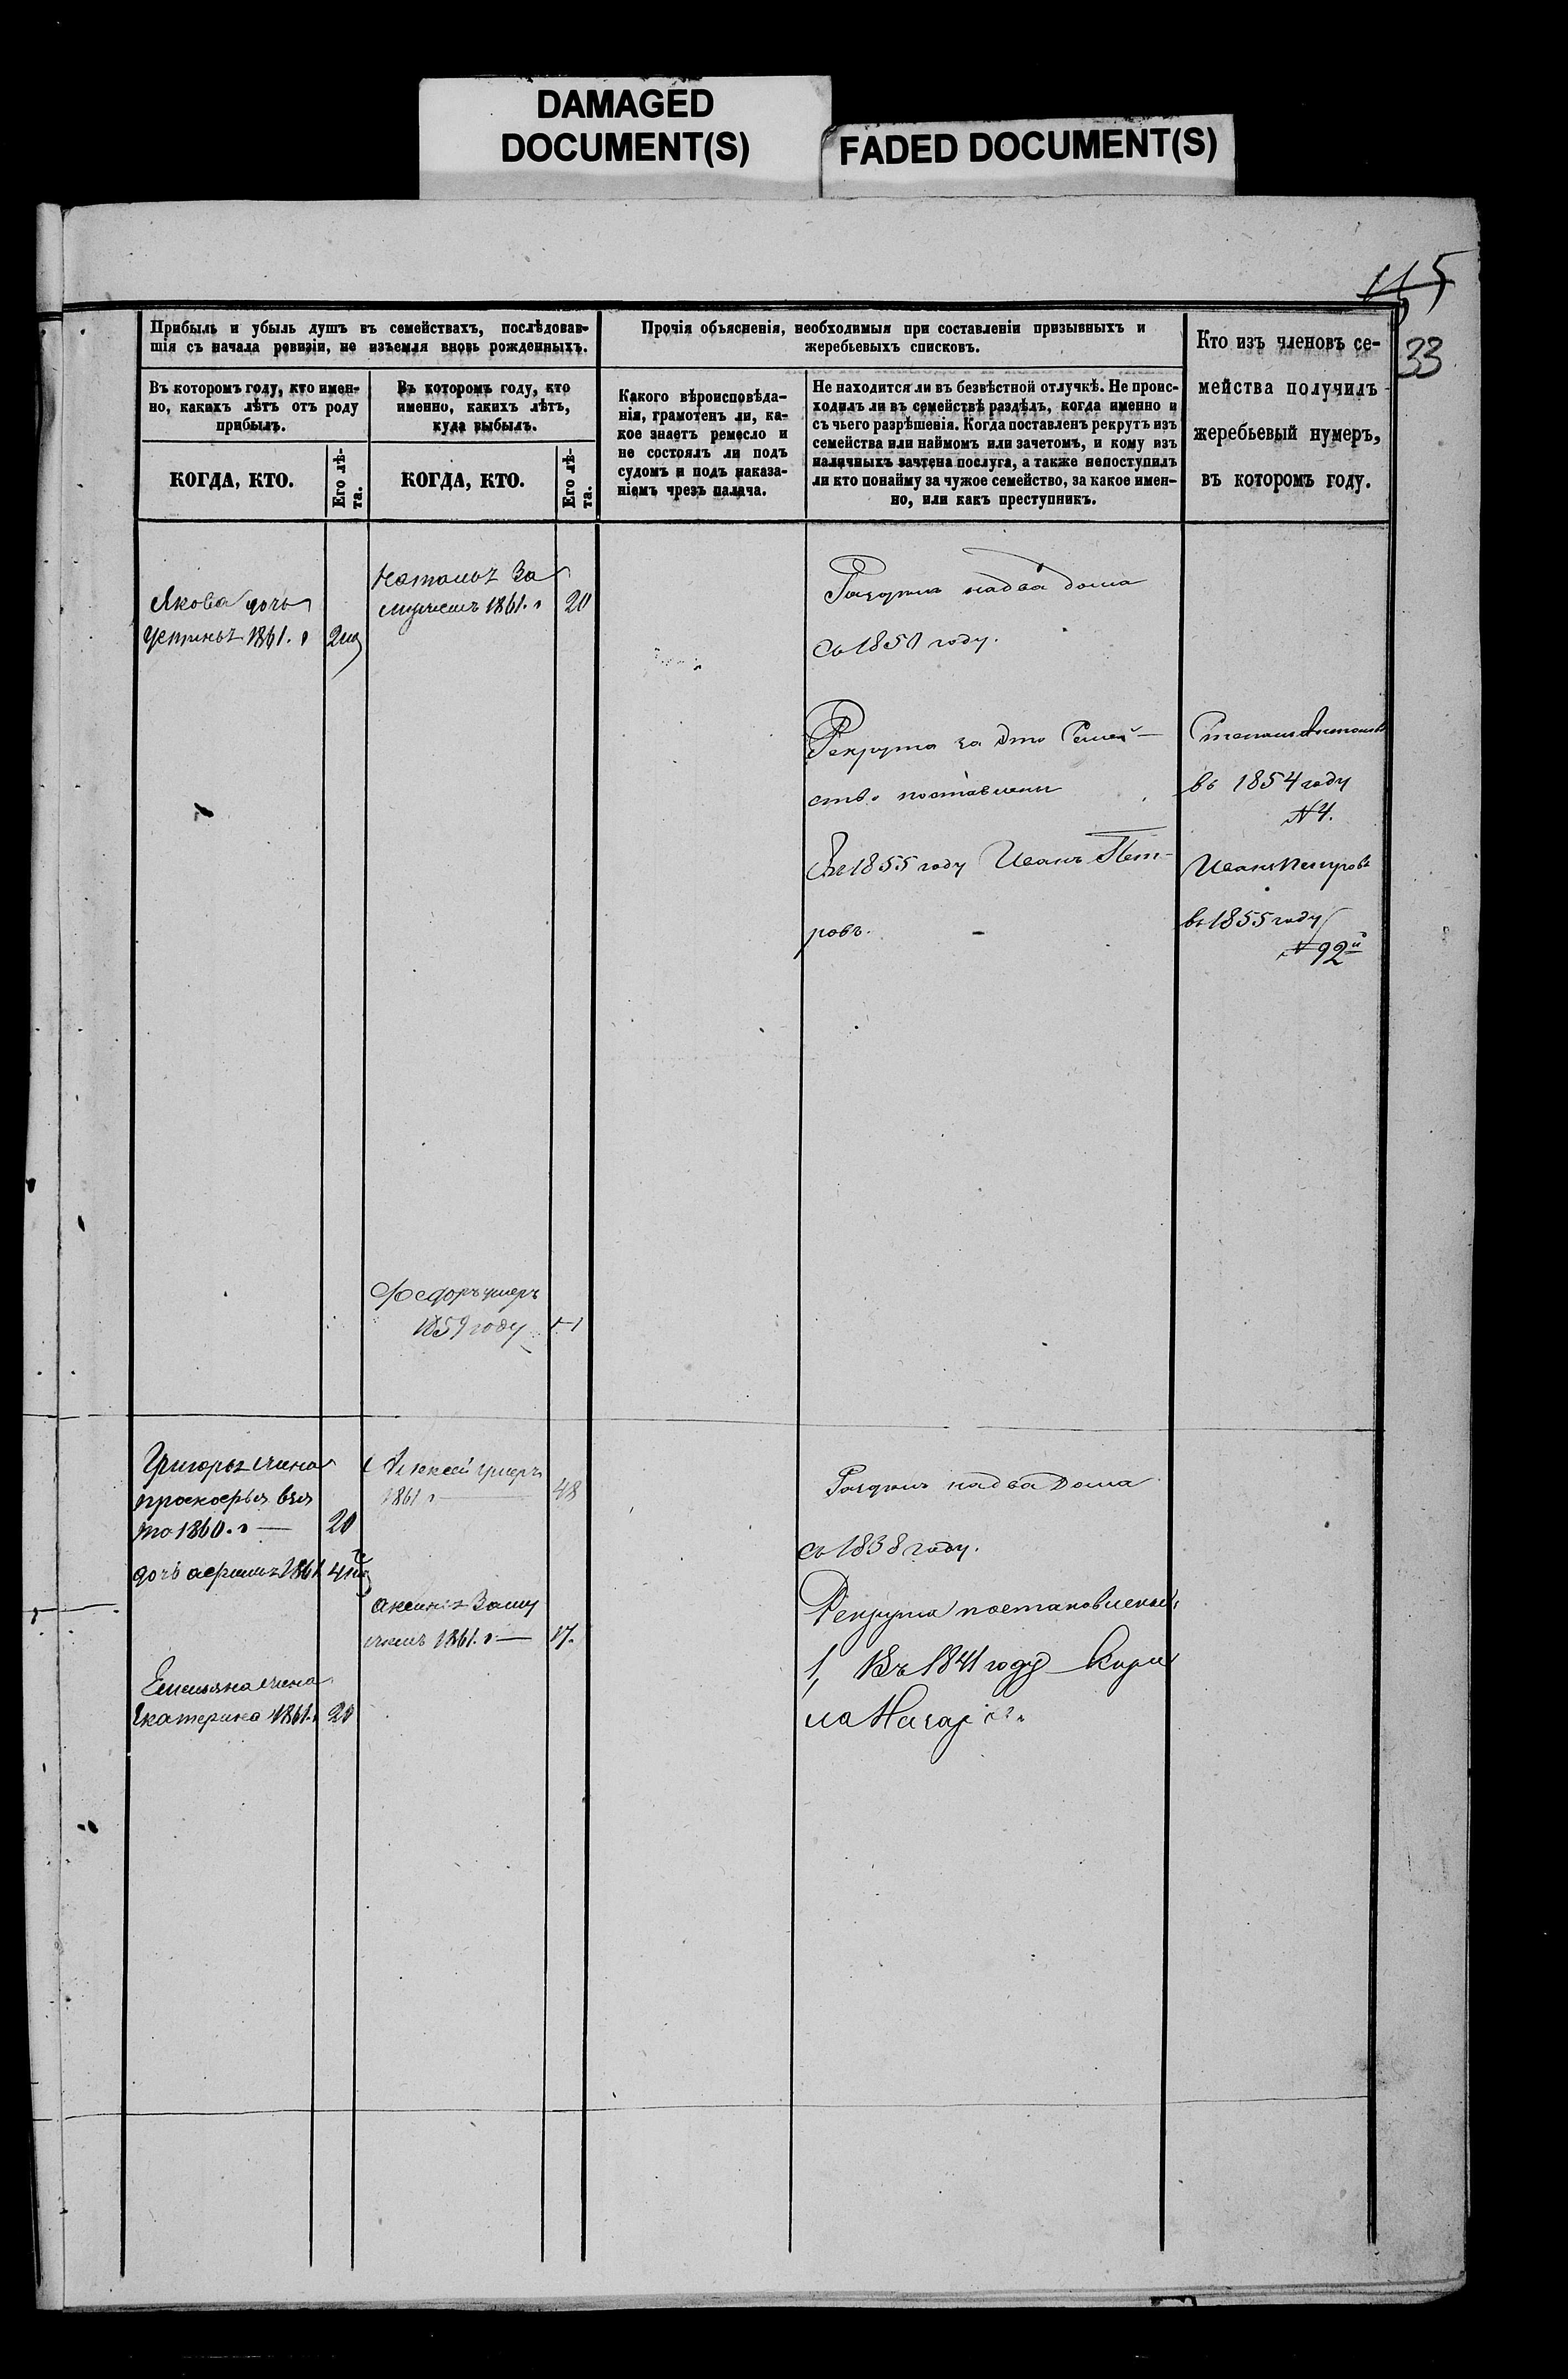 DAMAGED
DOCUMENT(S)
FADED DOCUMENT(S)
115
33
Прибыль и убыль душъ въ семействахъ, послѣдовав-
шія съ начала ревизіи, не изъемля вновь рожденныхъ.
Въ которомъ году, кто имен-
но, какихъ лѣтъ отъ роду
прибылъ.
КОГДА, КТО.
Его лѣ-
та.
Въ которомъ году, кто
именно, какихъ лѣтъ,
куда выбылъ.
КОГДА, КТО.
Его лѣ-
та.
Прочія объясненія, необходимыя при составленіи призывныхъ и
жеребьевыхъ списковъ.
Какого вѣроисповѣда-
нія, грамотенъ ли, ка-
кое знаетъ ремесло и
не состоялъ ли подъ
судомъ и подъ наказа-
ніемъ чрезъ палача.
Не находится ли въ безвѣстной отлучкѣ. Не проис-
ходилъ ли въ семействѣ раздѣлъ, когда именно и
съ чьего разрѣшенія. Когда поставленъ рекрутъ изъ
семейства или наймомъ или зачетомъ, и кому изъ
наличныхъ зачтена послуга, а также непоступилъ
ли кто понайму за чужое семейство, за какое имен-
но, или какъ преступникъ.
Кто изъ членовъ се-
мейства получилъ
жеребьевый нумеръ,
въ которомъ году.
Якова дочь
1861. 2
За
мужемъ 1861. 20
надва дома
съ 1850 году.
Рекрута за Это Семей-
ство поставлены
Въ 1855 году Иванъ Пет-
ровъ.
Степанъ
въ 1854 году
№ 4.
Иванъ Петровъ
въ 1855 году
№ 92й
Федоръ умеръ
1859 году
Григорья жена
взя
та 1860. 20
дочь 1861 4
Емельяна жена
Екатерина 1861. 20
Алексей умеръ
1861 48
Заму
жемъ 1861. 17.
надва Дома
съ 1838 году.
Рекрута
1, Въ 1841 году Кири
ла